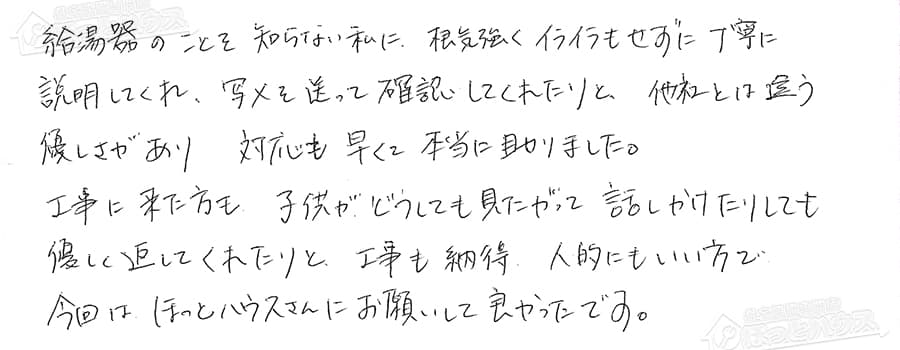 給湯器のことを知らない私に、根気強くイライラもせずに丁寧に
説明してくれ、写メを送って確認してくれたりと、他社とは違う
優しさがあり 対応も早くて本当に助かりました。
工事に来た方も、子供がどうしても見たがって話しかけたりしても
優しく返してくれたりと、工事も納得、人的にもいい方で
今回は、ほっとハウスさんにお願いして良かったです。